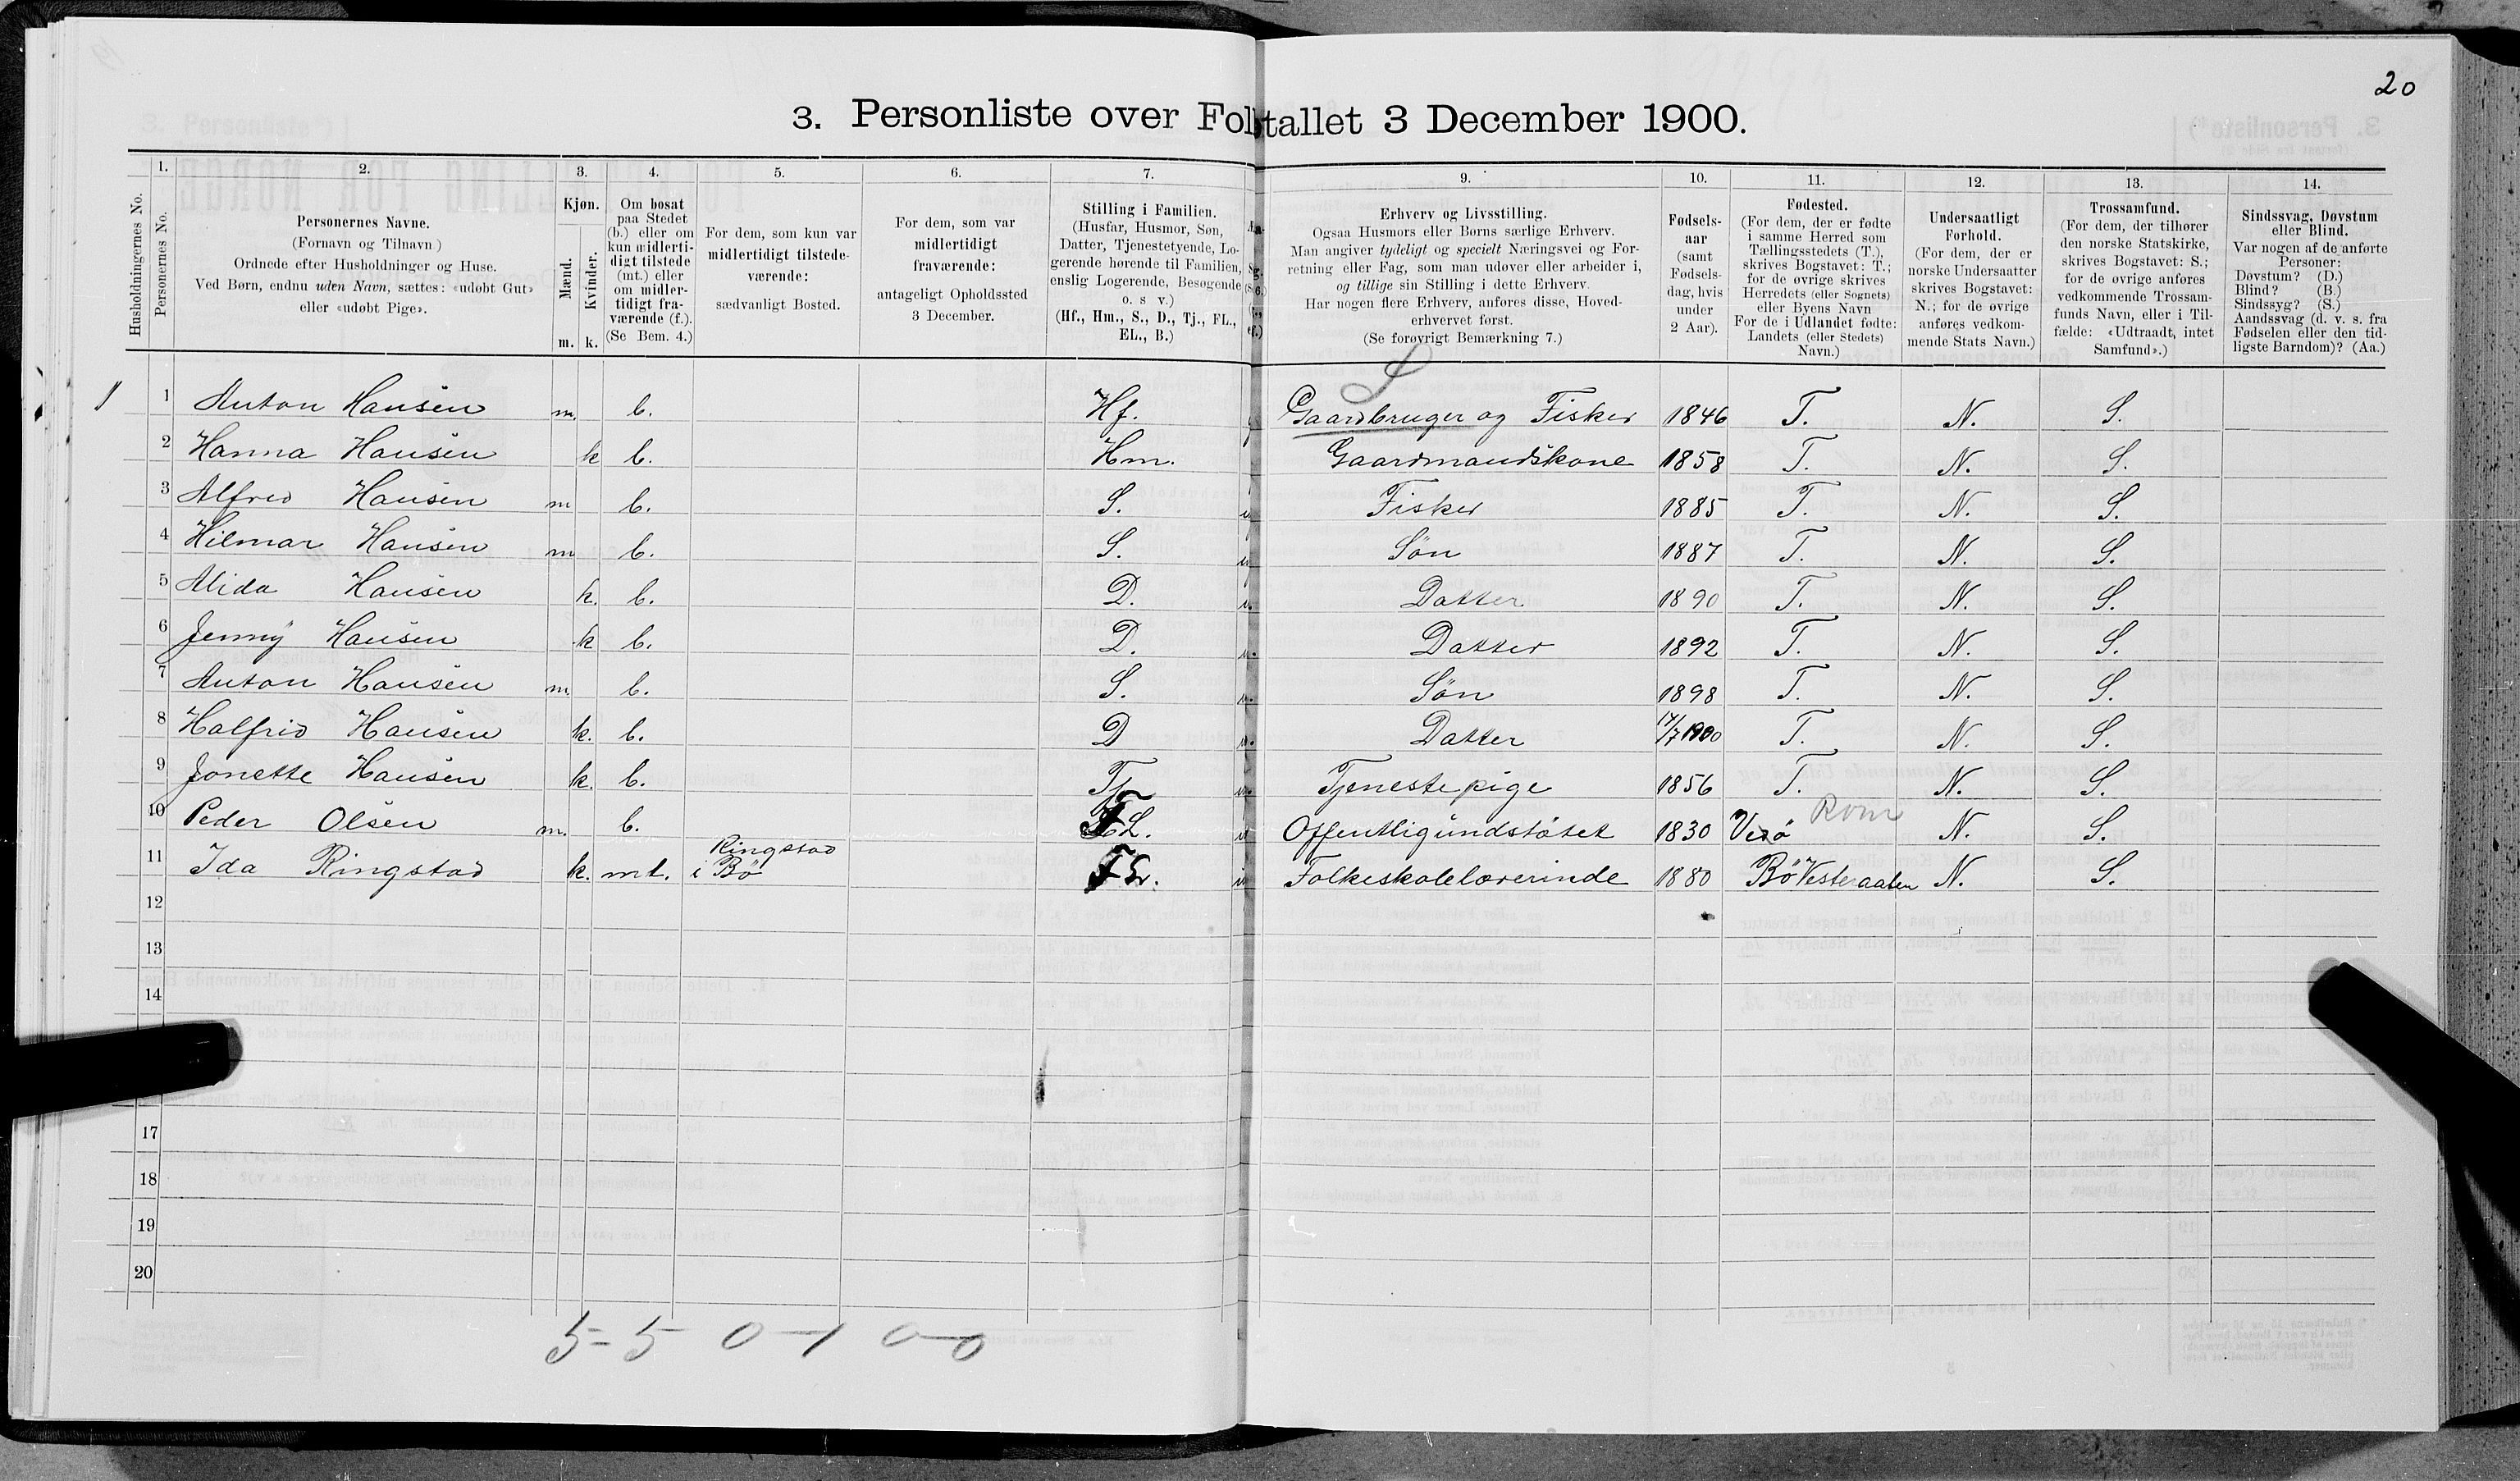 20
3. Personliste over Folketallet 3 December 1900.
1. 2. 3. 4. 5. 6. 7. 9. 10. 11. 12. 13. 14.
Husholdningernes No.
Personernes No.
Personernes Navne.
(Fornavn og Tilnavn)
Ordnede efter Husholdninger og Huse.
Ved Børn, endnu uden Navn, sættes: «udøbt Gut»
eller «udøbt Pige».
Kjøn.
Mænd.
Kvinder.
m. k.
Om bosat
paa Stedet
(b.) eller om
kun midlerti-
digt tilstede
(mt.) eller
om midler-
tidigt fra-
værende (f.).
(Se Bem. 4.)
For dem, som kun var
midlertidigt tilstede-
værende:
sædvanligt Bosted.
For dem, som var
midlertidigt
fraværende:
antageligt Opholdssted
3 December.
Stilling i Familien.
(Husfar, Husmor, Søn,
Datter, Tjenestetyende, Lo-
gerende hørende til Familien,
enslig Logerende, Besøgende
o. s v.)
(Hf., Hm., S., D., Tj., FL.,
EL., B.)
Erhverv og Livsstilling.
Ogsaa Husmors eller Børns særlige Erhverv.
Man angiver tydeligt og specielt Næringsvei og For-
retning eller Fag, som man udøver eller arbeider i,
og tillige sin Stilling i dette Erhverv.
Har nogen flere Erhverv, anføres disse, Hoved-
erhvervet først.
(Se forøvrigt Bemærkning 7.)
Fødsels-
aar
(samt
Fødsels-
dag, hvis
under
2 Aar).
Fødested.
(For dem, der er fødte
i samme Herred som
Tællingsstedets (T.),
skrives Bogstavet: T.;
for de øvrige skrives
Herredets (eller Sognets)
eller Byens Navn
For de i Udlandet fødte:
Landets (eller Stedets)
Navn.)
Undersaatligt
Forhold.
(For dem, der er
norske Undersaatter
skrives Bogstavet:
N.; for de øvrige
anføres vedkom-
mende Stats Navn.)
Trossamfund.
(For dem, der tilhører
den norske Statskirke,
skrives Bogstavet: S.;
for de øvrige anføres
vedkommende Trossam-
funds Navn, eller i Til-
fælde: «Udtraadt, intet
Samfund».)
Sindssvag, Døvstum
eller Blind.
Var nogen af de anførte
Personer:
Døvstum? (D.)
Blind? (B.)
Sindssyg? (S.)
Aandssvag (d. v. s. fra
Fødselen eller den tid-
ligste Barndom)? (Aa.)
S
1 1 Anton Hansen m. b. Hf. Gaardbruger og Fisker 1846 T. N. S.
2 Hanna Hansen k b. Hm. Gaardmandskone 1858 T. N. S.
3 Alfred Hansen m b. S. Fisker 1885 T. N. S.
4 Hilmar Hansen m b. S. Søn 1887 T. N. S.
5 Alida Hansen k. b. D. Datter 1890 T. N. S.
6 Jenny Hansen k b. D. Datter 1892 T. N. S.
7 Anton Hansen m. b. S. Søn 1898 T. N. S.
8 Halfrid Hansen k. b. D Datter 17/7 1900 T. N. S.
9 Jonette Hansen k. b. Tj Tjenestepige 1856 T. N. S.
Rom
10 Peder Olsen m. b. FL. Offentligundstøtet 1830 Verø N. S.
Ringstad
11 Ida Ringstad k. mt. i Bø Folkeskolelærerinde 1880 Bø Vesteraalen N. S.
12
13
14
17
18
19
20
5 - 5 0 - 1 0 - 0